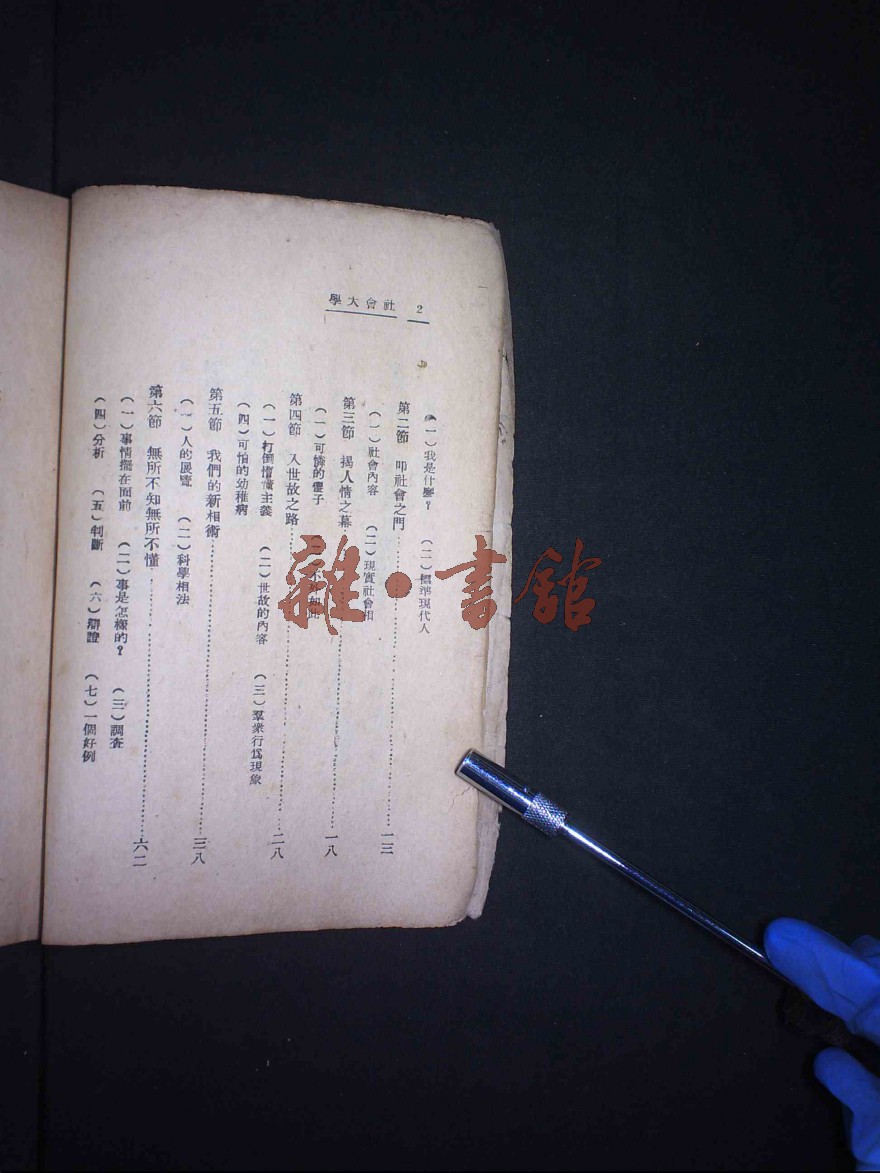 2 社會大學
(一)我是什麼? (二)標準現代人
第二節 叩社會之門 一三
(一)社會內容 (二)現實社會相
第三節 揭人情之幕 一八
(一)可憐的儍子
第四節 入世故之路 二八
(一)打倒懵懂主義 (二)世故的內容 (三)羣衆行爲現象
(四)可怕的幼稚病
第五節 我們的新相術 三八
(一)人的展覽 (二)科學相法
第六節 無所不知無所不懂 六二
(一)事情擺在面前 (二)事是怎樣的? (三)調查
(四)分析 (五)判斷 (六)辯證 (七)一個好例
雜·書館